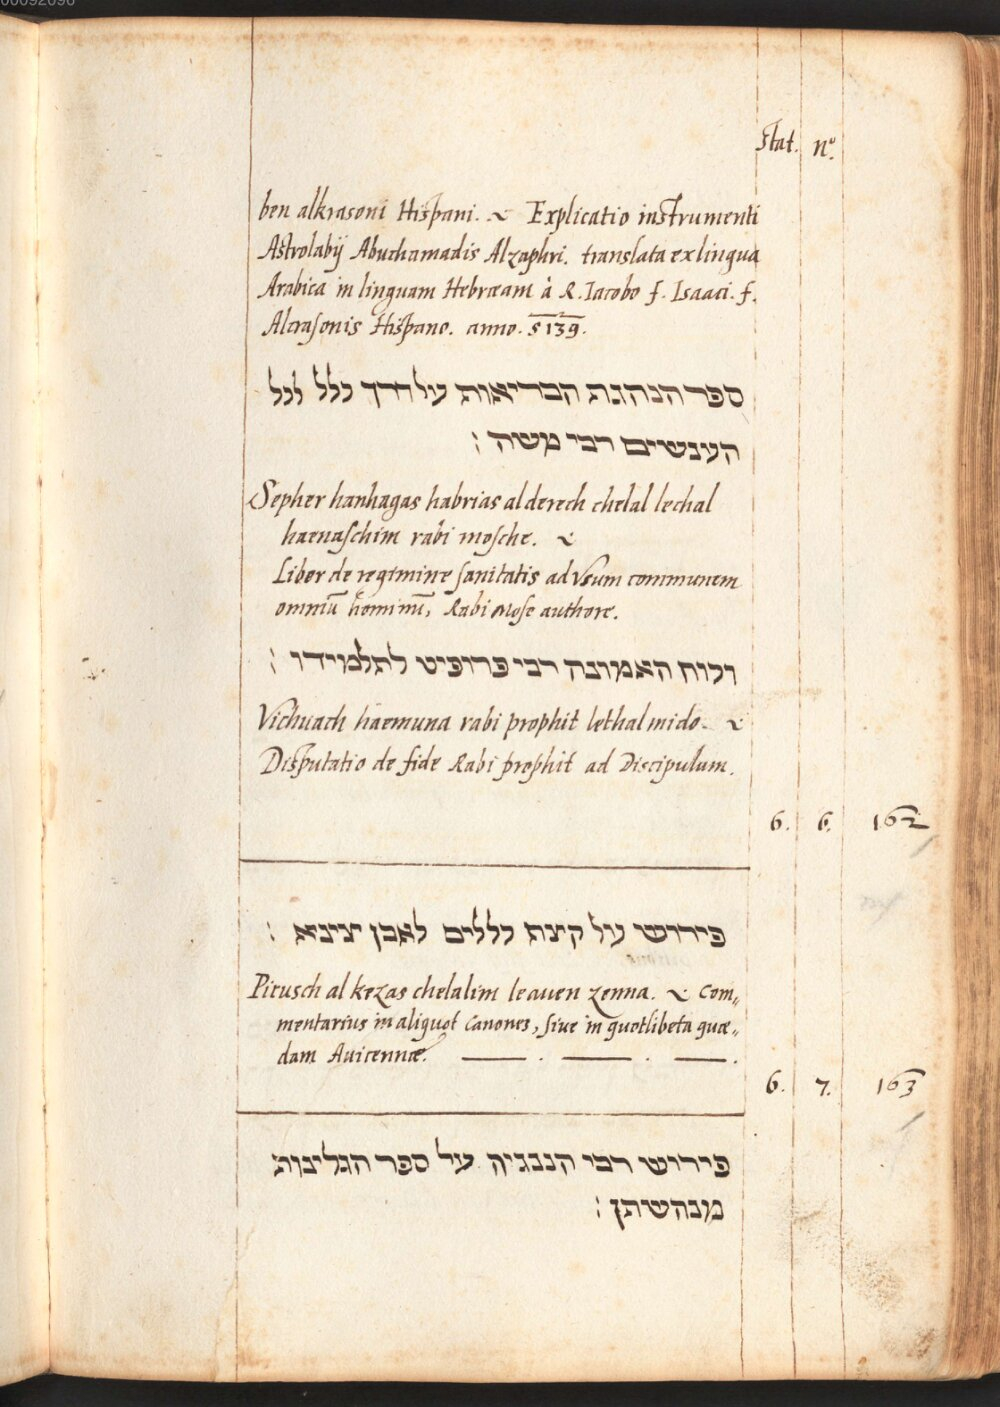 00092096
Stat. nº.
ben alkrasoni Hispani. ~ Explicatio instrumenti
Astrolabij Abuchamadis Alzaphri. translata ex lingua
Arabica in linguam Hebræam à R. Iacobo f. Isaaci. f.
Alcrasonis Hispano. anno. 5139.
ספר הנהגת הבריאות על דרך כלל לכל
העונשים רבי משה :
Sepher hanhagas habrias al derech chelal lechal
haenaschim rabi mosche. ~
Liber de regimine sanitatis ad Vsum communem
omniū hominū, Rabi Mose authore.
האמונה רבי פרופיט לתלמידו :
Vichuach haemuna rabi prophit lethalmido. ~
Disputatio de fide Rabi prophit ad Discipulum.
6. 6. 162
פירוש על קיצת כללים לאבן צינא :
Pirusch al kezas chelalim leauen zenna. ~ Com„
mentarius in aliquot Canones, siue in quotlibeta quæ„
dam Auicennæ.
6. 7. 163
פירוש רבי על ספר